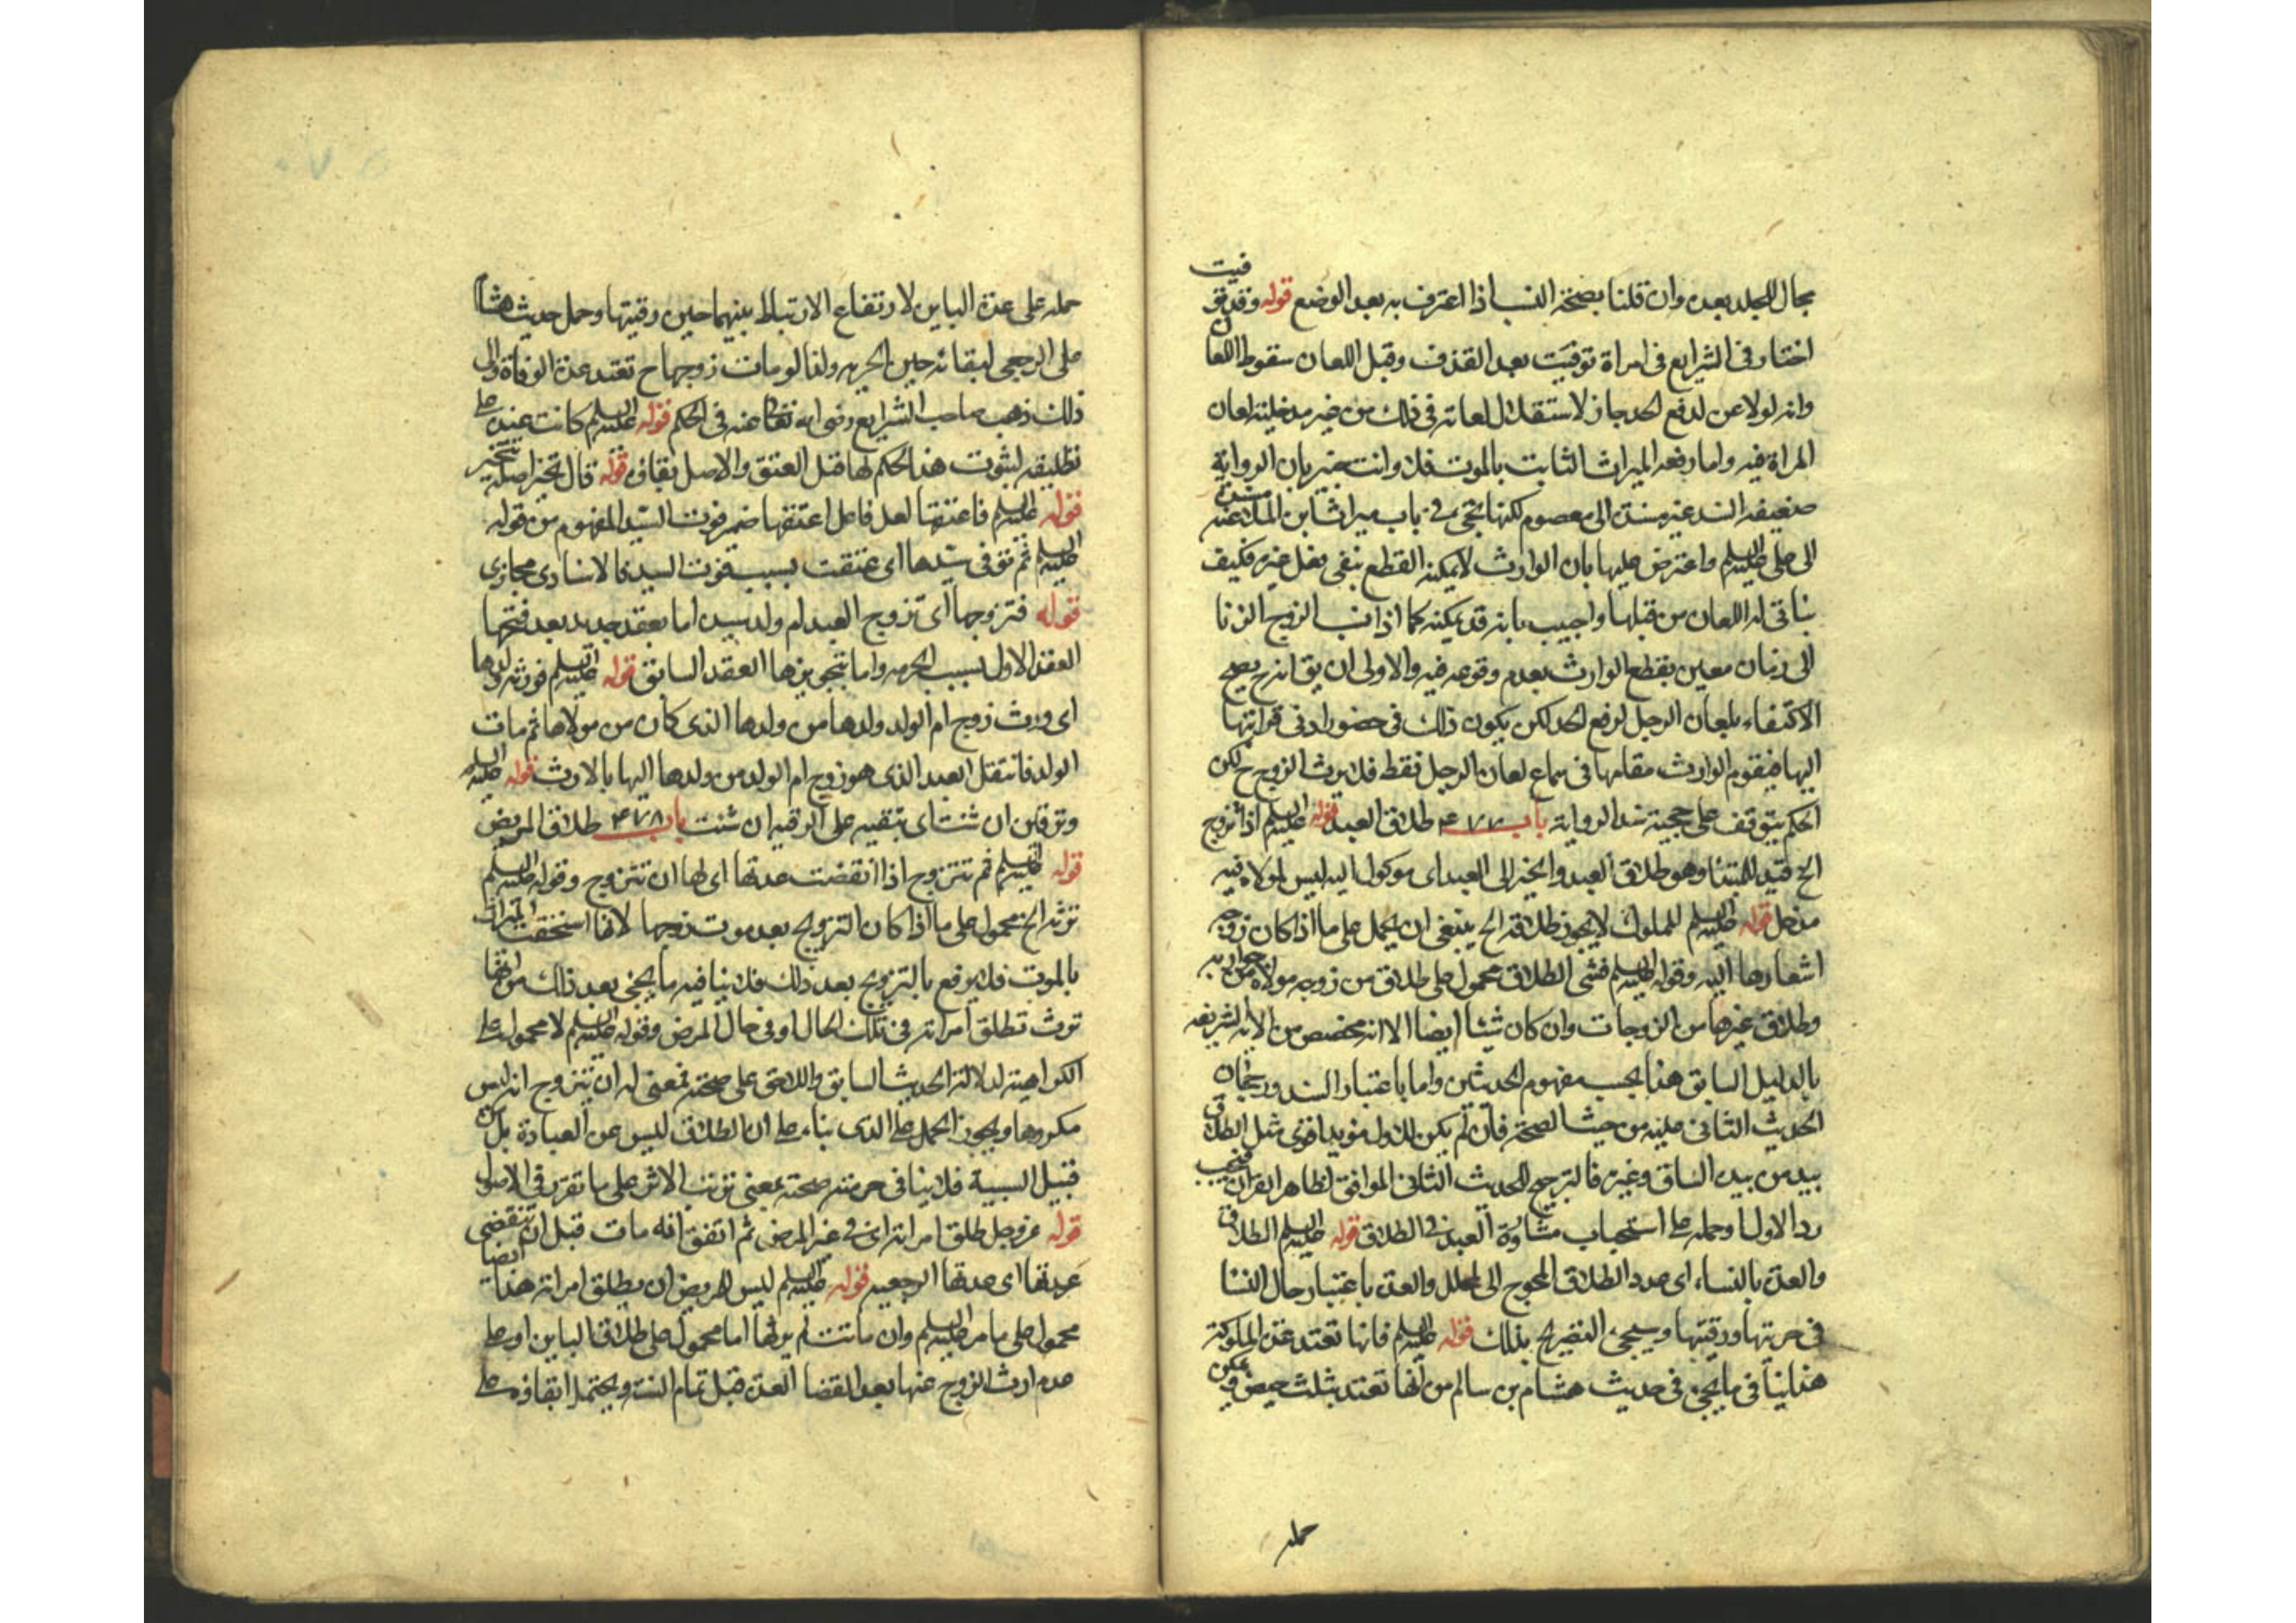 مجال للجلد بعده وان قلنا بصحة النسب اذا اعترف به بعد الوضع قوله وقد توفيت
اختار فى الشرايع فى امراة توفيت بعد القذف وقبل اللعان سقوط اللعان
وانه لو لاعن لدفع الحد جاز لاستقلال لعانه فى ذلك من غير مدخلية لعان
المراة فيه واما رفعه الميراث الثابت بالموت فلا وانت خبير بان الرواية
ضعيفة السند غير مسندة الى معصوم لكنها تجئ فى باب ميراث ابن الملاعنة مسندة
الى على عليه السلم واعترض عليها بان الوارث لا يمكنه القطع بنفى فعل غيره فكيف
يتاتى له اللعان من قبلها واجيب بانه قد يمكنه كما اذا نسب الزوج الزنا
الى زمان معين يقطع الوارث بعدم وقوعه فيه والاولى ان يق انه ح يصح
الاكتفاء بلعان الرجل لرفع الحد لكن يكون ذلك فى حضور ادنى قرابتها
اليها فيقوم الوارث مقامها فى سماع لعان الرجل فقط فلا يرث الزوج ح لكن
الحكم يتوقف على حجية سند الرواية باب ٤٧٧ طلاق العبد قوله عليه السلم اذا تزوج
الخ قيد للمبتدا وهو طلاق العبد والخبر الى العبد اى موكول اليه ليس لمولاه فيه
مدخل قوله عليه السلم المملوك لا يجوز طلاقه الخ ينبغى ان يحمل على ما اذا كان زوجه
اشعارها اليه وقوله عليه السلم فشئ الطلاق محمول على طلاق من زوجه مولاه من جواريه
وطلاق غيرها من الزوجات وان كان شيئا ايضا الا انه مخصص من الاية الشريفة
بالدليل السابق هذا بحسب مفهوم الحديثين واما باعتبار السند ورجحان
الحديث الثانى عليه من حيث الصحة فان لم يكن للاول مؤيد اقوى مثل الطلاق
بيد من بيده الساق وغيره فالترجيح للحديث الثانى الموافق لظاهر القران فيجب
رد الاول او حمله على استحباب مشاورة العبد فى الطلاق قوله عليه السلم الطلاق
والعدة بالنساء اى عدد الطلاق المحوج الى المحلل والعدة باعتبار حال النسا
فى حريتها ورقيتها وسيجئ التصريح بذلك قوله عليه السلم فانها تعتد عدة المملوكة
هذا ينافى ما يجئ فى حديث هشام بن سالم من انها تعتد بثلث حيض ويمكن
حمله
حمله على عدة الباين لارتفاع الارتباط بينهما حين رقيتها وحمل حديث هشام
على الرجعى لبقائه حين الحرية ولذا لو مات زوجها ح تعتد عدة الوفاة والى
ذلك ذهب صاحب الشرايع رضى الله تعالى عنه فى الحكم قوله عليه السلم كانت عنده على
تطليقة لثبوت هذا الحكم لها قبل العتق والاصل بقاؤه قوله قال تخير اصله تتخير
قوله عليه السلم فاعتقها لعل فاعل اعتقها ضمير فوت السيد المفهوم من قوله
عليه السلم ثم توفى سيدها اى عتقت بسبب فوت السيد فالاسناد مجازى
قوله فتزوجها اى تزوج العبد ام ولد سيده اما بعقد جديد بعد فسخها
العقد الاول بسبب الحرية واما بتجويزها العقد السابق قوله عليه السلم فورثه ولدها
اى ورث زوج ام الولد ولدها من ولدها الذى كان من مولاها ثم مات
الولد فانتقل العبد الذى هو زوج ام الولد من ولدها اليها بالارث قوله عليه السلم
وترقين ان شئت اى تبقيه على الرقية ان شئت باب ٤٧٨ طلاق المريض
قوله عليه السلم ثم تتزوج اذا انقضت عدتها اى لها ان تتزوج وقوله عليه السلم
ترثه الخ محمول على ما اذا كان التزويج بعد موت زوجها لانها استحقت الميراث
بالموت فلا يرفع بالتزويج بعد ذلك فلا ينافيه ما يجئ بعد ذلك من انها
ترث تطلق امراته فى تلك الحال اى فى حال المرض وقوله عليه السلم لا محمول على
الكراهية لدلالة الحديث السابق واللاحق على صحته فمعنى له ان تتزوج انه ليس
مكروها ويجوز الحمل على الذى بناء على ان الطلاق ليس عن العبادة بل من
قبيل السببية فلا ينافى حرمته صحته بمعنى ترتب الاثر على ما تقرر فى الاصول
قوله عن رجل طلق امراته اى فى غير المرض ثم اتفق انه مات قبل ان تنقضى
عدتها اى عدتها الرجعية قوله عليه السلم ليس للمريض ان يطلق امراته هذا ايضا
محمول على ما مر عليه السلم وان ماتت لم يرثها اما محمول على طلاق الباين او على
عدم ارث الزوج عنها بعد انقضا العدة قبل تمام السنة ويحتمل ابقاؤه على